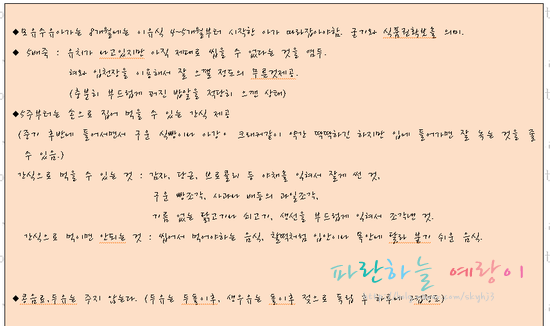 ◆모유수유아가는 8개월에는 이유식 4~5개월부터 시작한 아가 따라잡아야함. 굳기와 식품권확보를 의미.
◆ 5배죽 : 유치가 나고있지만 아직 제대로 씹을 수 없다는 것을 염두.
혀와 입천장을 이용해서 잘 으깰 정도의 무른것제공.
(충분히 부드럽게 퍼진 밥알을 적당히 으깬 상태)
◆5주부터는 손으로 집어 먹을 수 있는 간식 제공
(중기 후반에 들어서면서 구운 식빵이나 아강이 크래커같이 약간 딱딱하긴 하지만 입에 들어가면 잘 녹는 것을 줄
수 있음.)
간식으로 먹을 수 있는 것 : 감자, 당근, 브로콜리 등 야채를 익혀서 잘게 썬 것,
구운 빵조각, 사과나 배등의 과일조각,
기름 없는 닭고기나 쇠고기, 생선을 부드럽게 익혀서 조각낸 것.
간식으로 먹이면 안되는 것 : 씹어서 먹어야하는 음식, 찰떡처럼 입안이나 목안에 달라 붙기 쉬운 음식.
파란하늘 예랑이
◆콩음료,두유는 주지 않는다. (두유는 두돌이후, 생우유는 돌이후 젖으로 독립 후 하루에 2컵정도)